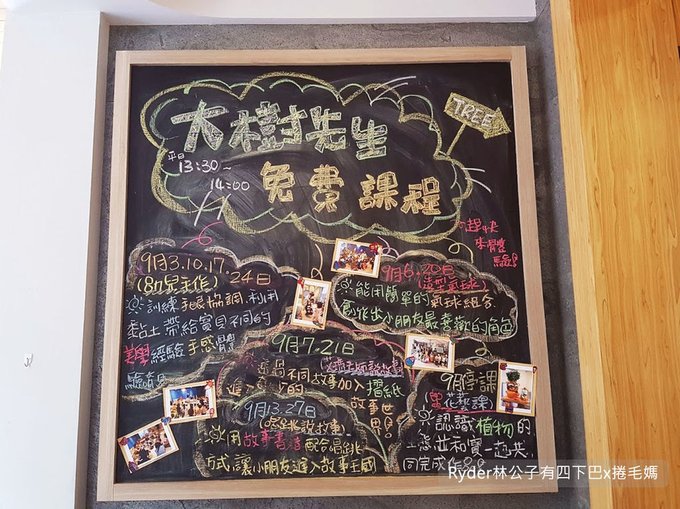 大樹先生
TREE
平日
13:30~
14:00
免費課程
趕快
來體驗
9月3.10.17.
24日
訓練手眼協調,利用
黏土帶給寶貝不同的
美學經驗手感體
驗
9月6.20日
(造型氣球)
能用簡單的氣球組合
創作出小朋友最喜歡的角色
9月7.21日
透過不同故事加入摺紙
進入
的故事世界
9月13.27日
用故事書
方式讓小朋友進入故事
9月停課
花藝課)
認識植物的
生態並和寶一起共
同完成
Ryder林公子有四下巴x捲毛媽